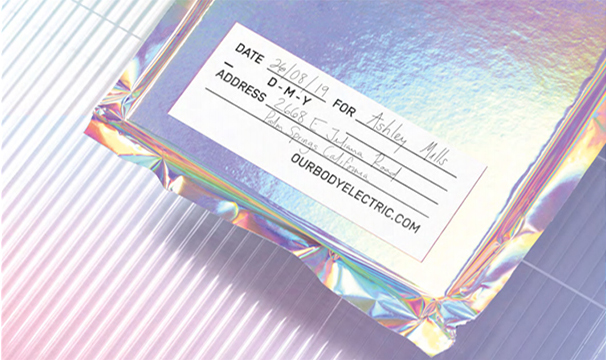 DATE 26/08/19 FOR Ashley Mills
— D-M-Y
ADDRESS 2668 E Juliana Road
Palm Springs California
OURBODYELECTRIC.COM